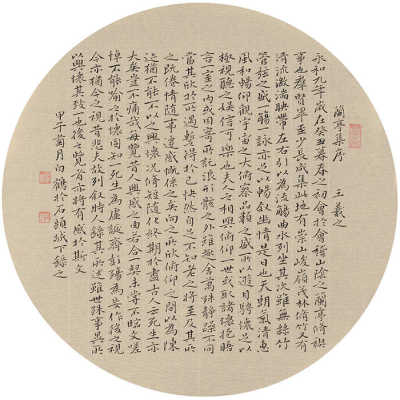 蘭亭集序 王羲之
永和九年歲在癸丑暮春之初會於會稽山陰之蘭亭脩稧
事也群賢畢至少長咸集此地有崇山峻嶺茂林脩竹又有
清流激湍映帶左右引以為流觴曲水列坐其次雖無絲竹
管弦之盛一觴一詠亦足以暢敘幽情是日也天朗氣清惠
風和暢仰觀宇宙之大俯察品類之盛所以遊目騁懷足以
極視聽之娛信可樂也夫人之相與俯仰一世或取諸懷抱晤
言一室之內或因寄所託放浪形骸之外雖趣舍萬殊靜躁不同
當其欣於所遇暫得於己快然自足不知老之將至及其所
之既倦情隨事遷感慨係之矣向之所欣俯仰之間以為陳
迹猶不能不以之興懷況脩短隨化終期於盡古人云死生亦
大矣豈不痛哉每覽昔人興感之由若合一契未嘗不臨文嗟
悼不能喻之於懷固知一死生為虛誕齊彭殤為妄作後之視
今亦猶今之視昔悲夫故列敘時人錄其所述雖世殊事異所
以興懷其致一也後之覽者亦將有感於斯文
甲午菊月白鶴於石頭城下錄之